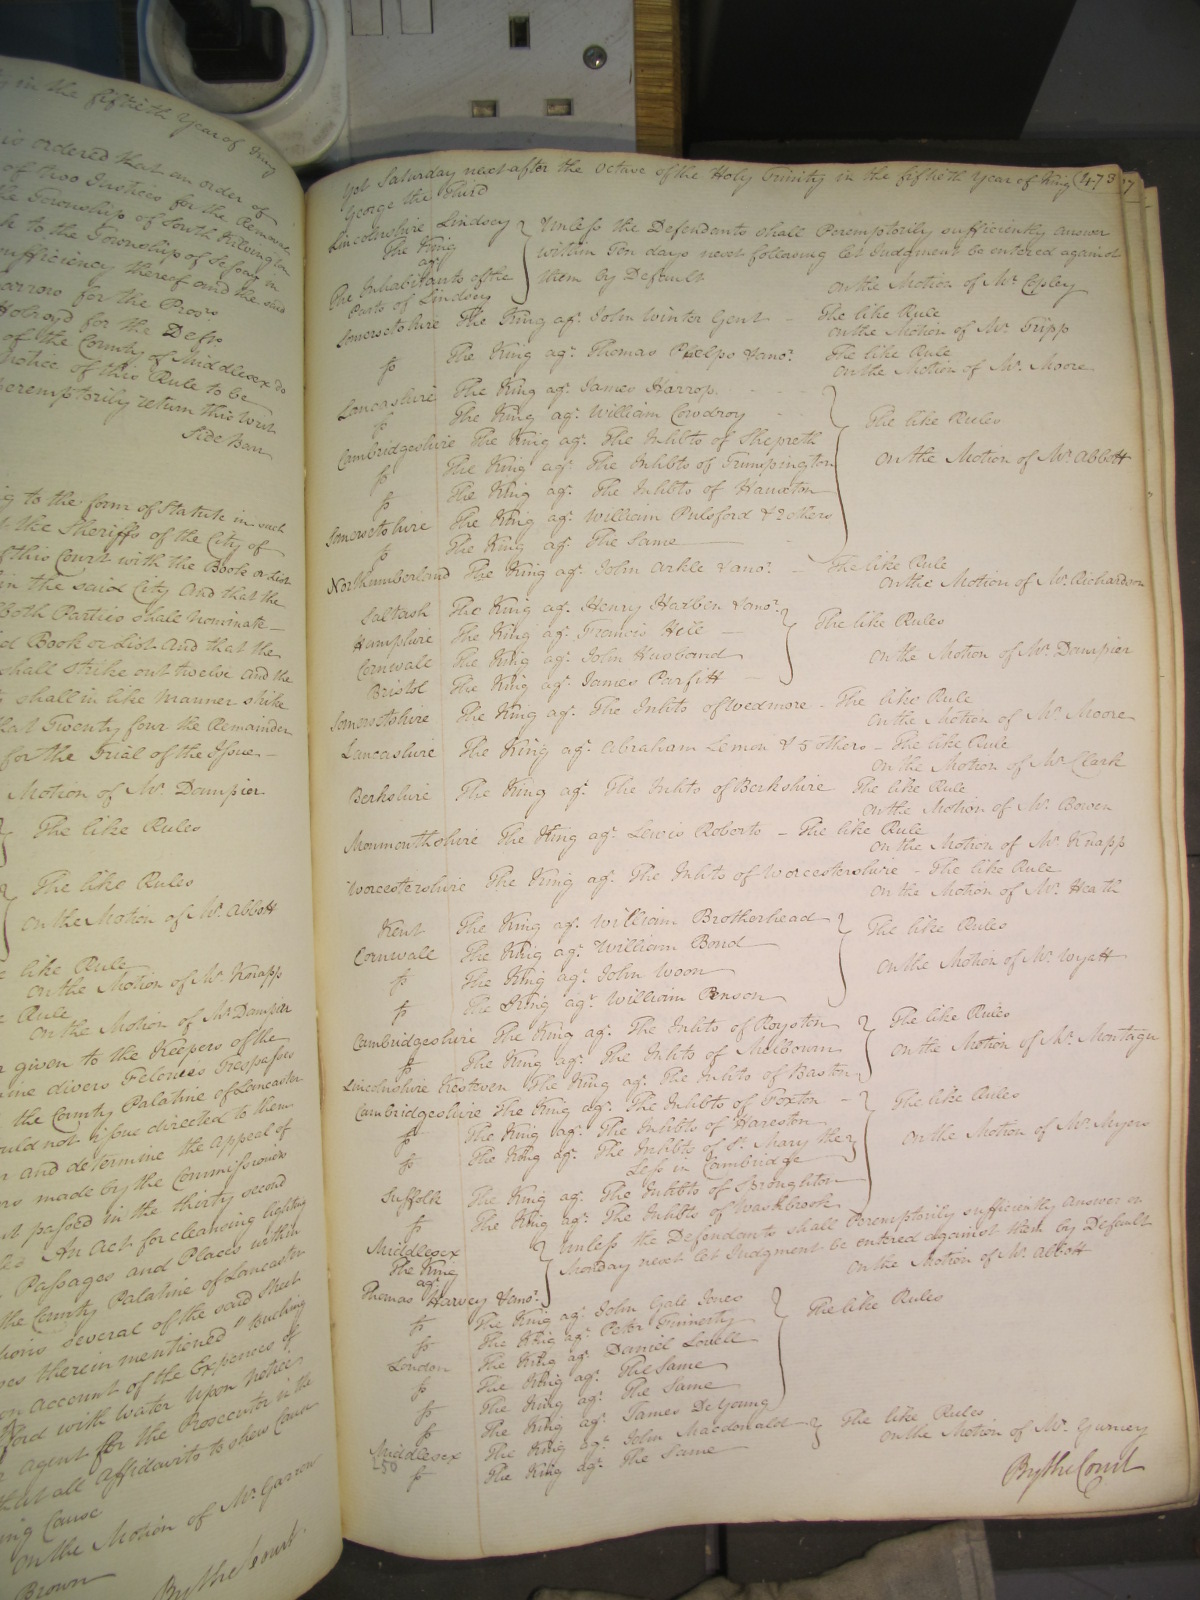 in the fiftieth Year of King
is ordered that an order of
of two Justices for the Removal
the Township of South Kilvington
to the Township of Sessay in
sufficiency thereof and the said
Garrow for the Pros.r
Holroyd for the Def.ts
of the County of Middlesex do
notice of this Rule to be
peremptorily return this Writ
Side Bar
to the form of Statute in such
the Sheriffs of the City of
this Court with the Book or List
in the said City And that the
both Parties shall nominate
Book or List And that the
shall strike out twelve and the
shall in like manner strike
that Twenty four the Remainder
for the Trial of the Issue
Motion of Mr. Dampier
The like Rules
The like Rules
on the Motion of Mr. Abbott
like Rule
on the Motion of Mr. Knapp
Rule
on the Motion of Mr Dampier
given to the Keepers of the
divers Felonies Trespasses
the County Palatine of Lancaster
should not issue directed to them
and determine the Appeal of
made by the Commissioners
passed in the thirty second
An Act for cleansing lighting
Passages and Places within
the County Palatine of Lancaster
several of the said Street
therein mentioned "touching
on account of the Expences of
with Water upon Notice
agent for the Prosecutor in the
that all Affidavits to shew Cause
Cause
on the Motion of Mr. Garrow
Brown
By the Court
Yet Saturday next after the Octave of the Holy Trinity in the fiftieth Year of King 473
George the Third
Lincolnshire Lindsey
The King
agt.
The Inhabitants of the
Parts of Lindsey
Unless the Defendants shall Peremptorily sufficiently answer
within Ten days next following let Judgment be entered against
them by Default
on the Motion of Mr Copley
Somersetshire The King agt. John Winter Gent - The like Rule
on the Motion of Mr. Tripp
fs The King agt. Thomas Phelps & anor. The like Rule
on the Motion of Mr. Moore
Lancashire The King agt. James Harrop
fs The King agt. William Cowdroy
Cambridgeshire The King agt. The Inhbts of Shepreth
fs The King agt. The Inhbts of Trumpington
fs The King agt. The Inhbts of Hauxton
Somersetshire The King agt. William Pulsford & 2 others
fs The King agt. The Same
The like Rules
on the Motion of Mr. Abbott
Northumberland The King agt. John Arkle & anor. - The like Rule
on the Motion of Mr. Richardson
Saltash The King agt. Henry Harben & anor.
Hampshire The King agt. Francis Hele
Cornwall The King agt. John Husband
Bristol The King agt. James Parfitt
The like Rules
on the Motion of Mr. Dampier
Somersetshire The King agt. The Inhbts of Wedmore - The like Rule
on the Motion of Mr. Moore
Lancashire The King agt. Abraham Lemon & 5 others - The like Rule
on the Motion of Mr Clark
Berkshire The King agt. The Inhbts of Berkshire The like Rule
on the Motion of Mr. Bowen
Monmouthshire The King agt. Lewis Roberts - The like Rule
on the Motion of Mr. Knapp
Worcestershire The King agt. The Inhbts of Worcestershire - The like Rule
on the Motion of Mr. Heath
Kent The King agt. William Brotherhead
Cornwall The King agt. William Bond
fs The King agt. John Woon
fs The King agt. William Penson
The like Rules
on the Motion of Mr. Wyatt
Cambridgeshire The King agt. The Inhbts of Royston
fs The King agt. The Inhbts of Melbourn
Lincolnshire Kesteven The King agt. The Inhbts of Baston
The like Rules
on the Motion of Mr. Montagu
Cambridgeshire The King agt. The Inhbts of Foxton
fs The King agt. The Inhbts of Hareston
fs The King agt. The Inhbts of St. Mary the
Less in Cambridge
Suffolk The King agt. The Inhbts of Broughton
fs The King agt. The Inhbts of Washbrook
The like Rules
on the Motion of Mr. Myers
Middlesex
The King
agt.
Thomas Harvey & anor.
Unless the Defendants shall Peremptorily sufficiently answer on
Monday next let Judgment be entered against them by Default
on the Motion of Mr. Abbott
fs The King agt. John Gale Jones
fs The King agt. Peter Finnerty
London The King agt. Daniel Lovell
fs The King agt. The Same
fs The King agt. The Same
fs The King agt. James De Young
The like Rules
Middlesex The King agt. John Macdonald
fs The King agt. The Same
The like Rules
on the Motion of Mr. Gurney
250
By the Court